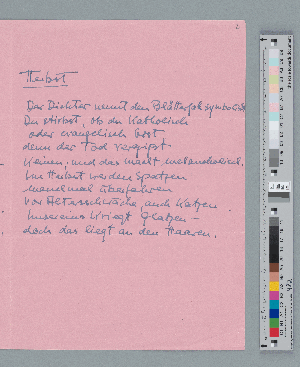 Herbst
Der Dichter nennt den Blätterfall symbolisch
Du stirbst, ob du katholisch
oder evangelisch bist,
denn der Tod vergisst
Keinen, und das macht melancholisch.
Im Herbst werden Spatzen
manchmal überfahren
vor Altersschwäche, auch Katzen
Unsereins kriegt Glatzen –
doch das liegt an den Haaren.